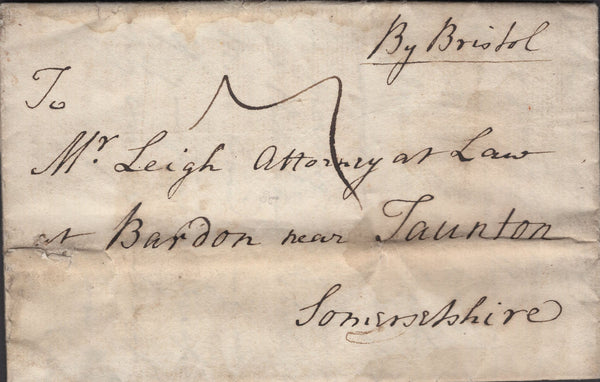 By Bristol
To
7
Mr. Leigh Attorney at Law
at Bardon near Taunton
Somersetshire